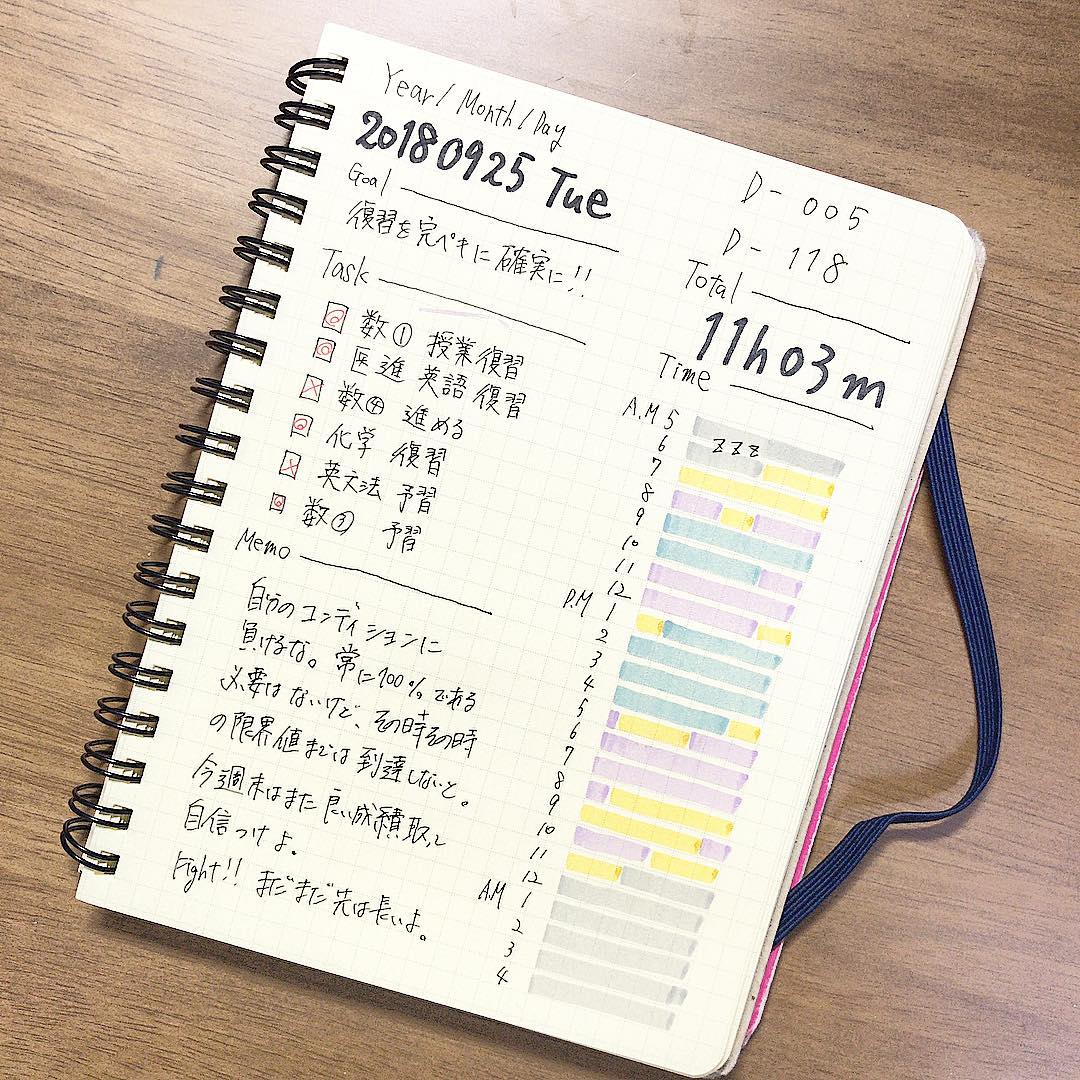 Year/Month/Day
20180925 Tue
D-005
D-118
Goal
復習を完ペキに確実に!!
Total
11h03m
Task
数① 授業復習
医進 英語 復習
数④ 進める
化学 復習
英文法 予習
数③ 予習
Memo
自分のコンディションに
負けるな。常に100%である
必要はないけど、その時その時
の限界値までは到達しないと。
今週末はまた良い成積取って
自信つけよ。
Fight!! まだまだ先は長いよ。
Time
A.M 5
zzz
6
7
8
9
10
11
12
P.M 1
2
3
4
5
6
7
8
9
10
11
12
A.M 1
2
3
4